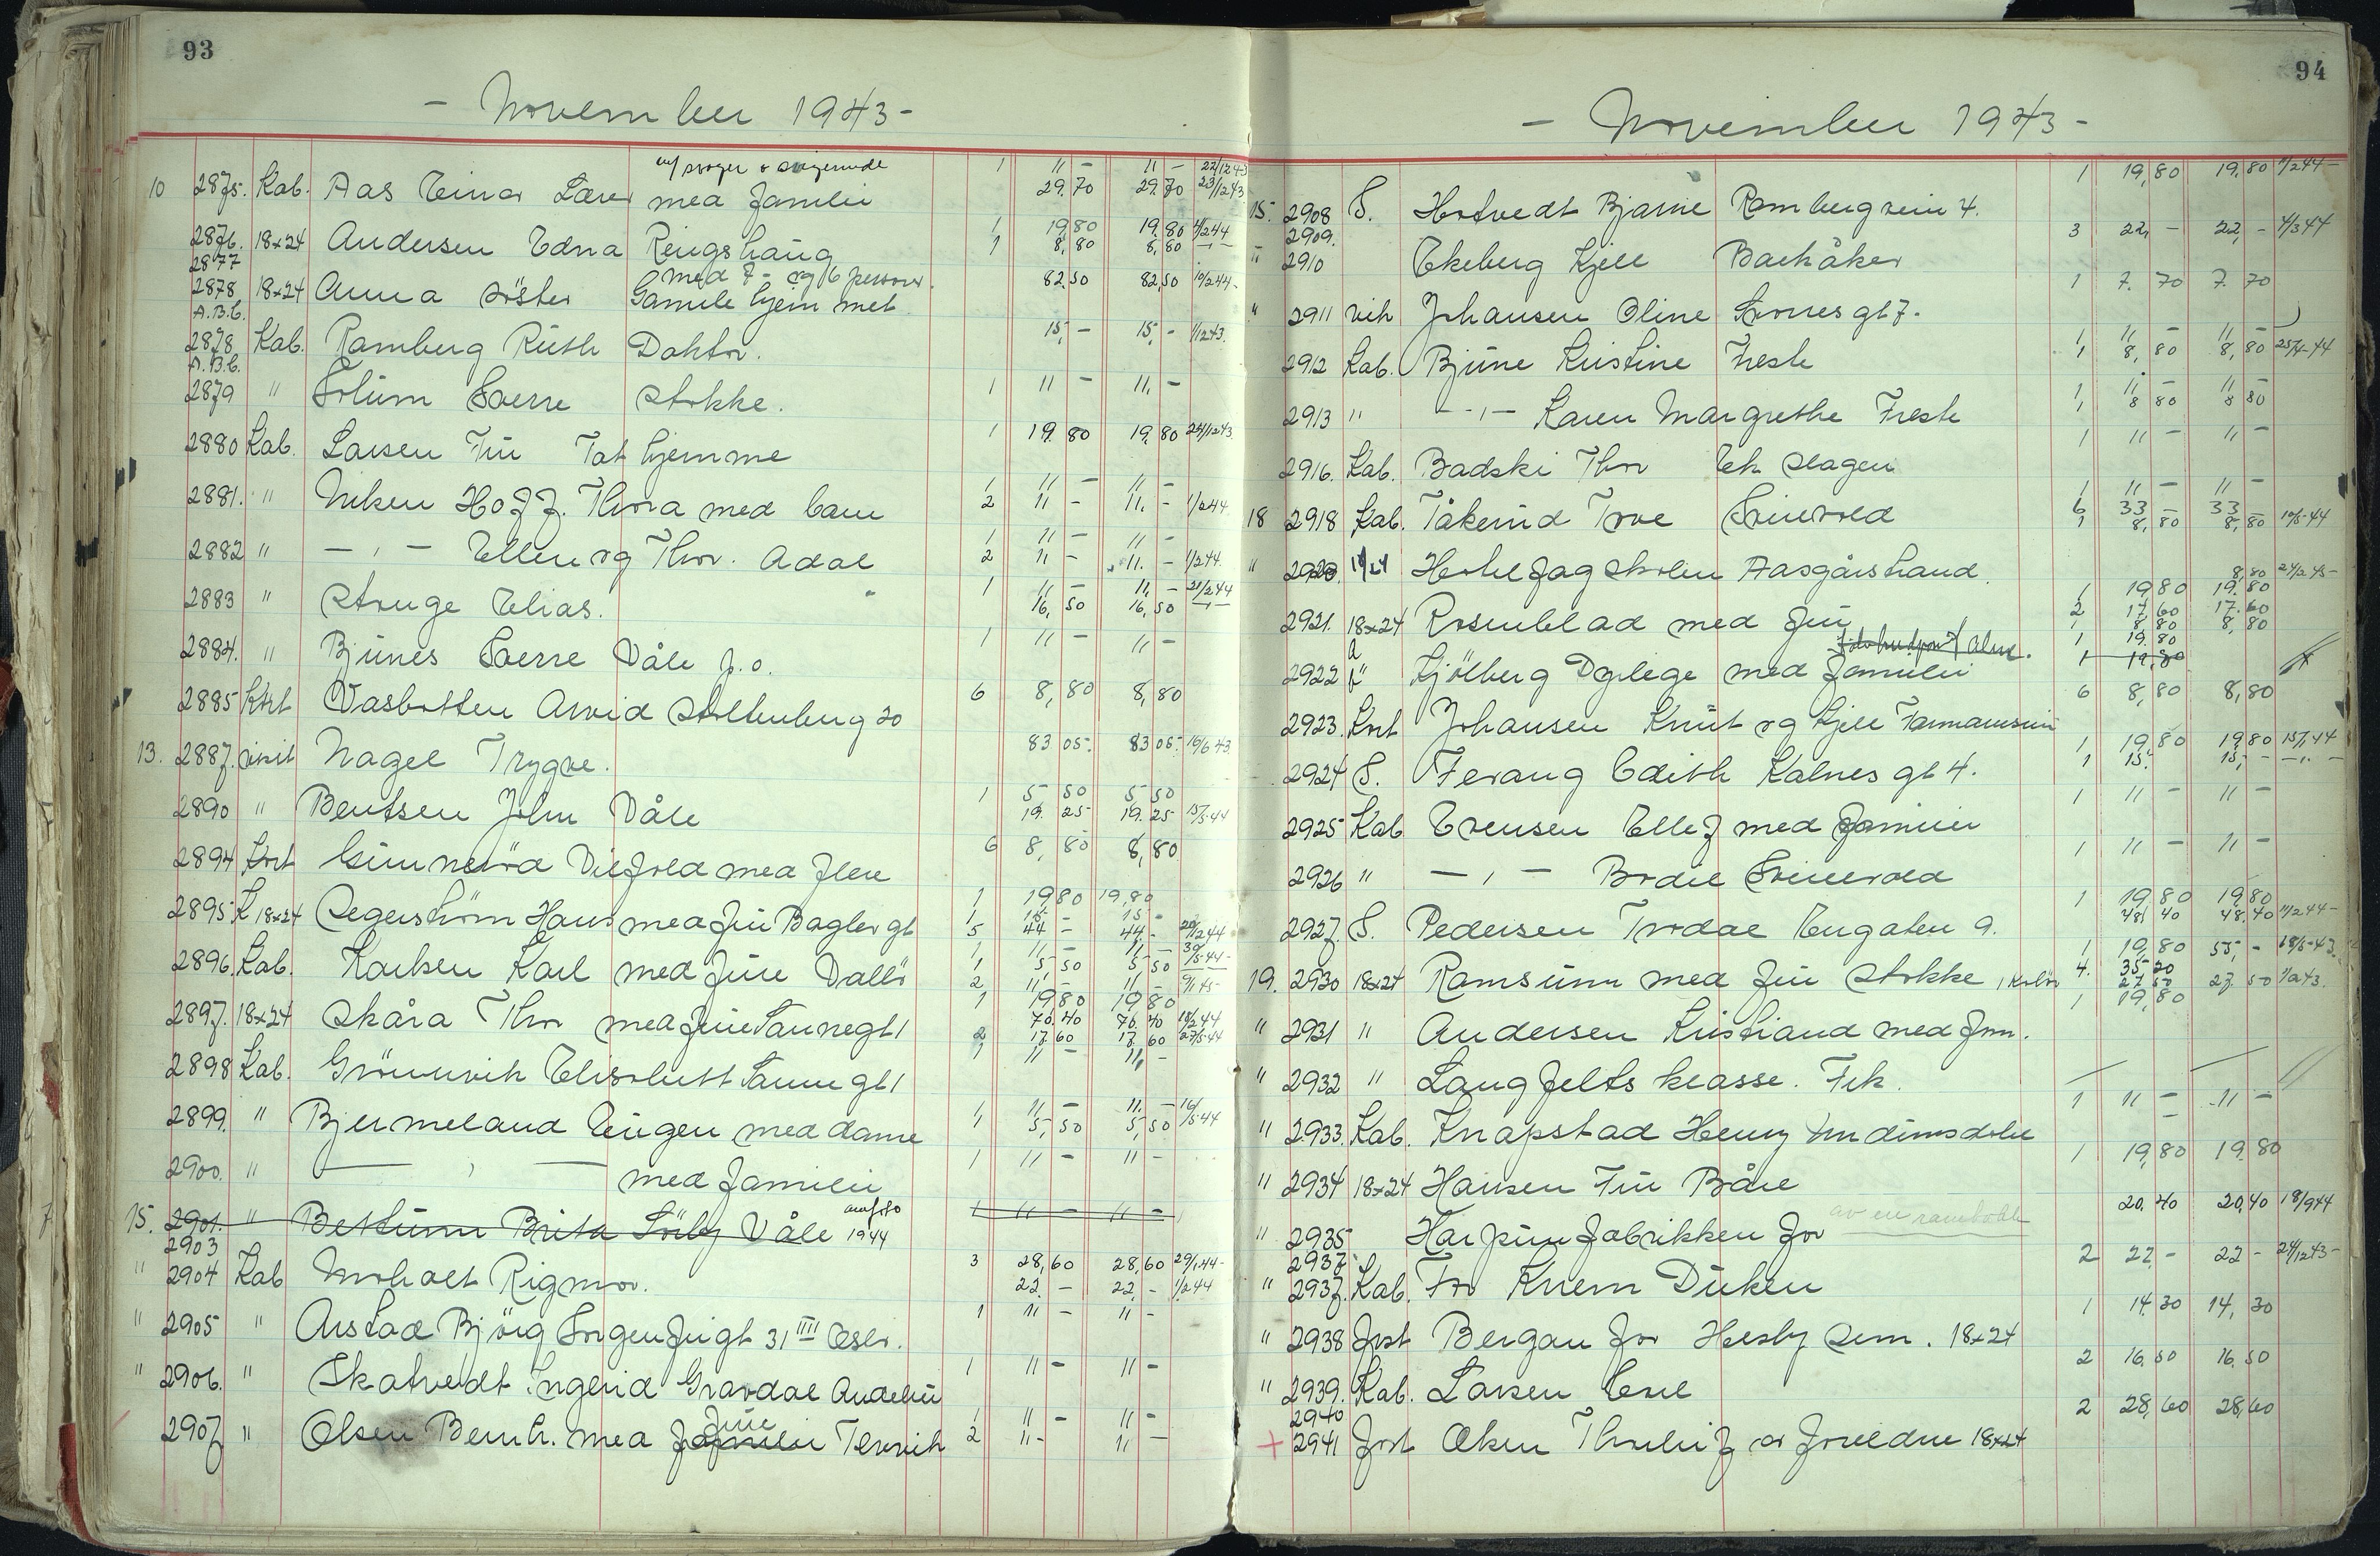 93
- November 1943 -
m/ svoger o svigerinde 1 11 - 11 - 22/12 43
10 2875. Kab. Aas Einar Lærer med familie 29.70 29.70 23/12 43
2876. 18x24 Andersen Edna Ringshaug 1 19,80 19,80 4/2 44
2877 1 8,80 8,80 -"-
med 7 - og 6 personer.
2878 18x24 Anna söster Gamle hjem met 82.50 82,50 10/2 44-
A.B.C.
2878 Kab. Ramberg Ruth Doktor. 15,- 15,- 1/12 43.
A.B.C.
2879 " Solum Sverre Stokke. 1 11 - 11, -
2880 Kab. Larsen Fru Tat hjemme 1 19.80 19,80 24/12 43.
1 11 - 11 -
2881. " Niken Hoff. Thora med barn 2 11 - 11. - 1/2 44
1 11 - 11 -
2882 " - " - Ellen og Thor. Adal 2 11 - 11. - 1/2 44.
2883 " Stange Elias. 1 11 - 11, - 21/2 44
16,50 16,50 -"-
2884. " Bjunes Sverre Våle p.o. 1 11 - 11 -
2885 Kort Vasbotten Arvid Stoltenberg 20 6 8,80 8,80
13. 2887. visit Nagel Trygve. 83 05. 83 05. 10/6 43.
2890 " Bentsen John Våle 1 5 50 5 50
19.25 19.25 15/5-44
2894 Kort Gunneröd Vilfred med flere 6 8,80 8,80
2895 K 18x24 Segerström Hans med fru Bagler gt 1 19,80 19,80
1 15 - 15 -
5 44 - 44 -
2896. Kab. Karlsen Karl med frue Vallö 1 11 - 11 -
1 5 50 5 50
2 11,- 11 -
2897. 18x24 Skåra Thor med frue Tanne gt 1 1 19 80 19 80
70.40 70,40 18/2 44
2 17.60 17,60 27/5-44
2898 Kab. Grönnvik Elisabett Tanne gt 1 1 11 - 11, -
2899. " Bjermeland Eugen med dame 1 11 - 11. - 16/5-44
1 5,50 5,50
2900. " - " - med familie 1 11 - 11 -
15. 2901. " Bettum Brita Söby Våle 1944 1 11 - 11 -
2903
" 2904 Kab Moholt Rigmor. 3 28,60 28,60 29/1 44-
22. - 22, - 1/2 44
" 2905 " Arstad Björg Sorgenfrigt 31 IIII Oslo. 1 11 - 11 -
" 2906. " Skatvedt Ingerid Gravdal Andebu 1 11 - 11 -
frue
2907 " Olsen Bernh. med familie Tervik 1 11 - 11 -
2 11 - 11 -
94
- November 1943 -
1 19,80 19,80 7/2 44-
15. 2908 S. Hotvedt Bjarne Rambergvein 4.
2909. 3 22, - 22, - 4/3 44
" 2910 Ekeberg Kjell Barkåker
1 7. 70 7. 70
" 2911 vih Johansen Oline Svones gt 7.
1 11, - 11 -
1 8,80 8,80 25/4-44
2912 Kab. Bjune Kristine Freste
1 11 - 11 -
1 8 80 8 80
2913 " - " - Karen Margrethe Freste
1 11 - 11 -
2916. Kab. Badski Thor Ek Slagen
1 11 - 11 -
6 33 - 33 -
18 2918 Kab. Tåkerud Tove Svinevold 1 8,80 8,80 10/5-44
" 2920. 18/24 Hotel fagskolen Aasgårstrand. 8,80 24/2 45-
1 19,80 19.80
2 17,60 17.60
2921. 18x24 Rosenblad med fru 1 8,80 8,80
1 19.80
2922 " Kjölberg Dyrlege med familie 1 19,80
6 8,80 8,80
2923. Kort Johansen Knut og Kjell Farmannsvein
1 19,80 19,80 15/1 44
2924 S. Fevang Edith Kalnes gt 4. 1 15. 15, - -"-
1 11 - 11 -
2925 Kab Evensen Ellef med familie
1 11 - 11 -
2926 " - " - Bodil Svinevold
1 19,80 19,80
2927. S. Pedersen Trodal Engaten 9. 48,40 48,40 11/2 44-
1 19,80 55, - 18/5-43
19. 2930 18x24 Ramsumn med fru Stokke, i kolör 4. 35 20
27 50 27 50 1/2 43.
1 19,80
" 2931 " Andersen Kristiand med frue.
" 2932 " Langfelts klasse. Frk.
1 11 - 11 -
" 2933. Kab. Knapstad Henry
1 19,80 19.80
" 2934 18x24 Hansen Fru Båre
20,40 20,40 18/9 44
" 2935 Harpunfabrikken for av en
2937. 2 22, - 22 - 24/12 43-
" 2937. Kab. Fru Knem Duken
1 14.30 14,30
" 2938 fost Bergan for Hesby Sem. 18x24
2 16,50 16.50
" 2939. Kab. Larsen Erel
2940 2 28,60 28,60
+ 2941 fost Olsen Thorleif av foreldre 18x24